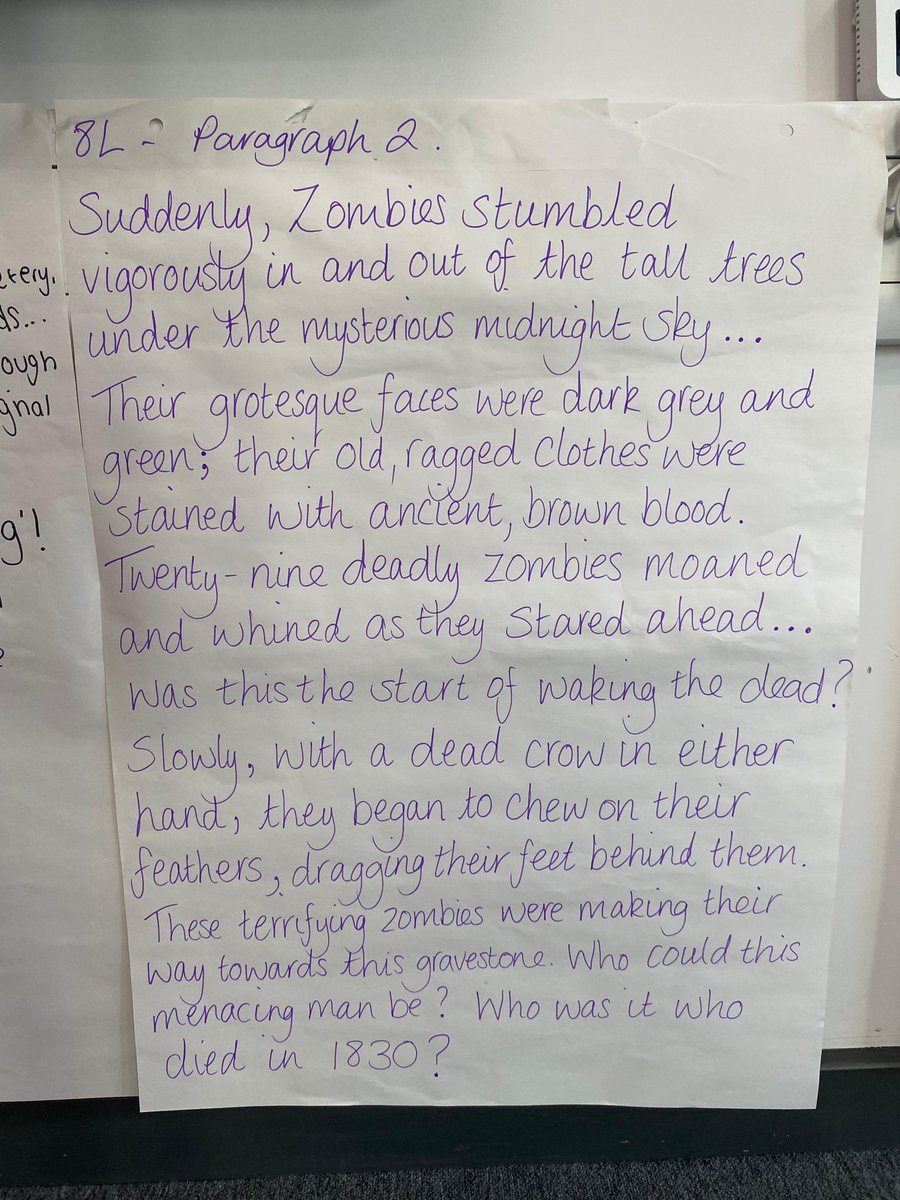 8L - Paragraph 2.
Suddenly, Zombies stumbled
vigorously in and out of the tall trees
under the mysterious midnight sky...
Their grotesque faces were dark grey and
green; their old, ragged clothes were
stained with ancient, brown blood.
Twenty-nine deadly zombies moaned
and whined as they stared ahead...
Was this the start of waking the dead?
Slowly, with a dead crow in either
hand, they began to chew on their
feathers, dragging their feet behind them.
These terrifying zombies were making their
way towards this gravestone. Who could this
menacing man be? Who was it who
died in 1830?